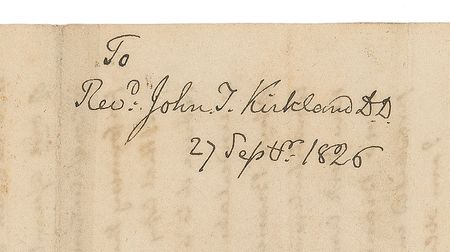 To
Revd. John. T. Kirkland D.D.
27 Septr. 1826